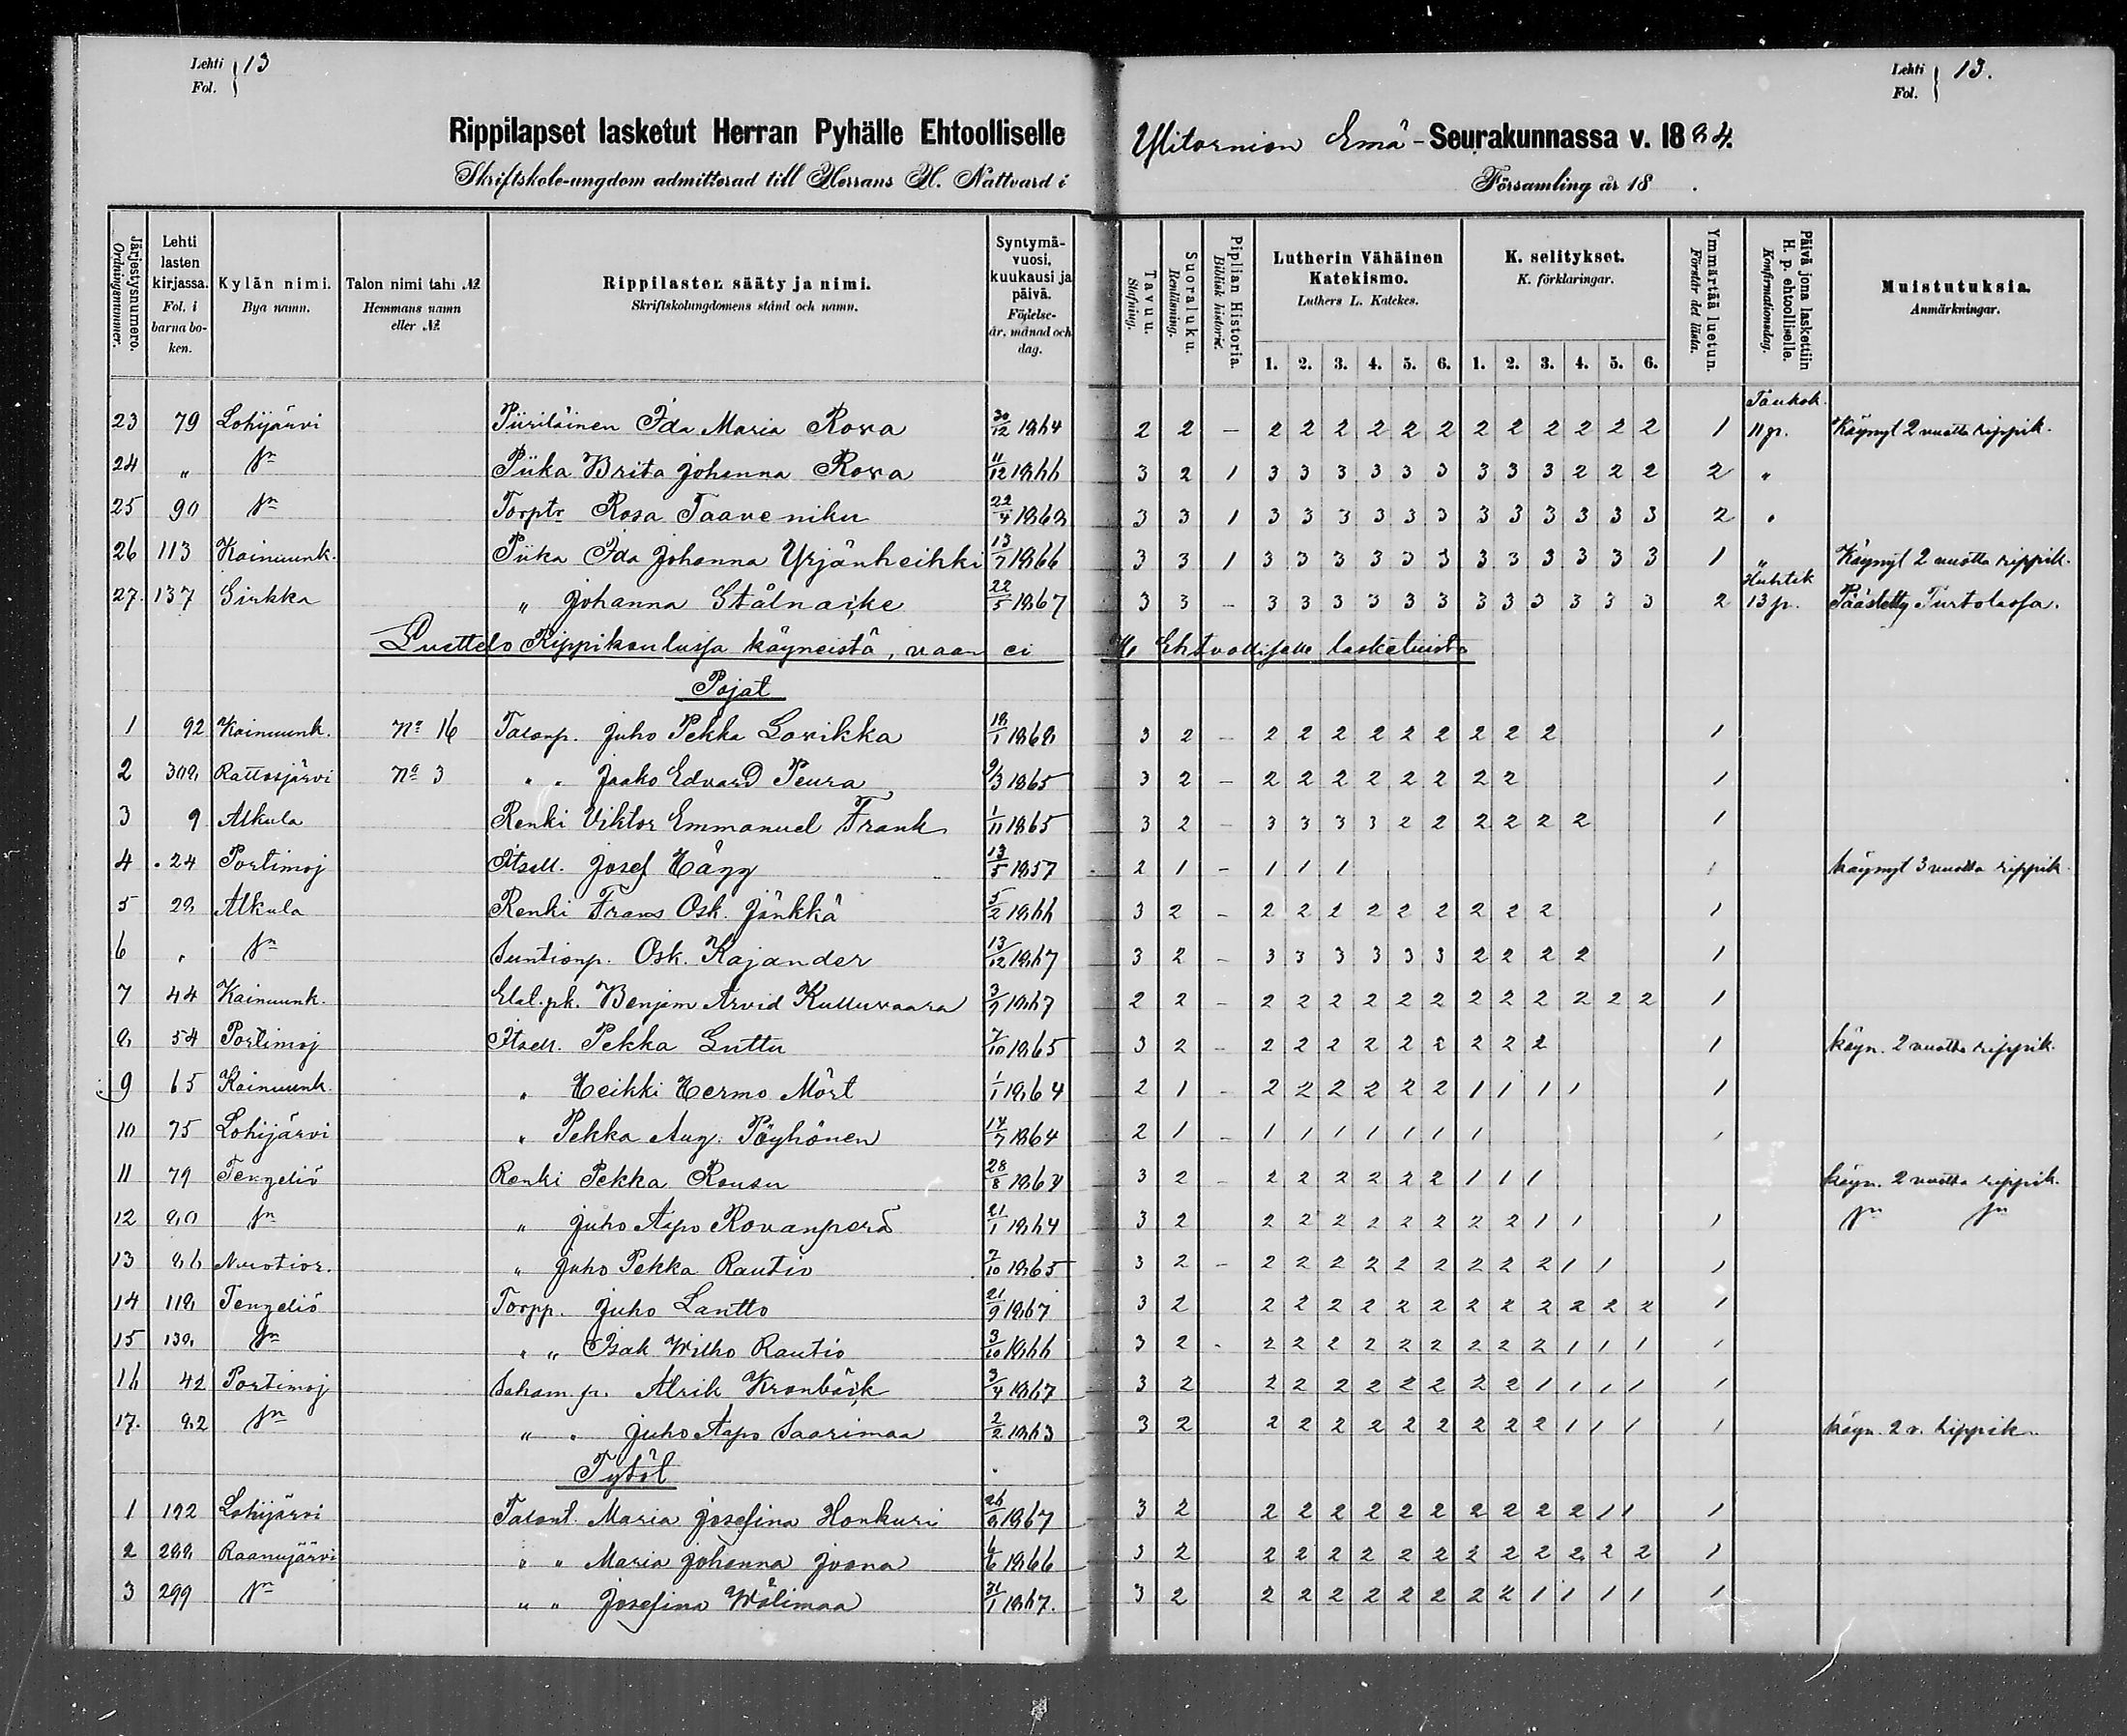 Lehti Fol. } 13
Lehti Fol. } 13.
Rippilapset lasketut Herran Pyhälle Ehtoolliselle Ylitornion Emä-Seurakunnassa v. 1884.
Skriftskole-ungdom admitterad till Herrans H. Nattvard i Församling år 18 .
Järjestysnumero. Ordningsnummer. | Lehti lasten kirjassa. Fol. i barna boken. | Kylän nimi. Bya namn. | Talon nimi tahi № Hemmans namn eller №. | Rippilasten sääty ja nimi. Skriftskolungdomens stånd och namn. | Syntymävuosi, kuukausi ja päivä. Födelseår, månad och dag. | Tavuu. Stafning. | Suoraluku. Renläsning. | Piplian Historia. Biblisk historie. | Lutherin Vähäinen Katekismo. Luthers L. Katekes. 1. 2. 3. 4. 5. 6. | K. selitykset. K. förklaringar. 1. 2. 3. 4. 5. 6. | Ymmärtää luetun. Förstår det lästa. | Päivä jona laskettiin H. p. ehtoolliselle. Konfirmationsdag. | Muistutuksia. Anmärkningar.
23 79 Lohijärvi Piiriläinen Ida Maria Rova 30/12 1864 2 2 – 2 2 2 2 2 2 2 2 2 2 2 2 1 Toukok. 11 p. Käynyt 2 vuotta rippik.
24 " dn Piika Brita Johanna Rova 11/12 1866 3 2 1 3 3 3 3 3 3 3 3 3 2 2 2 2 "
25 90 dn Torptr Rosa Taaveniku 22/4 1868 3 3 1 3 3 3 3 3 3 3 3 3 3 3 3 2 "
26 113 Kainuunk. Piika Ida Johanna Yrjänheikki 13/7 1866 3 3 1 3 3 3 3 3 3 3 3 3 3 3 3 1 " Käynyt 2 vuotta rippik.
27. 137 Sirkka " Johanna Stålnacke 22/5 1867 3 3 – 3 3 3 3 3 3 3 3 3 3 3 3 2 Huhtik 13 p. Päästetty Turtolassa.
Luettelo Rippikoulussa käyneistä, vaan ei H. Ehtoolliselle lasketuista
Pojat
1 92 Kainuunk. No 16 Talonp. Juho Pekka Lovikka 18/1 1868 3 2 – 2 2 2 2 2 2 2 2 2 1
2 308 Rattosjärvi No 3 " " Jaako Edvard Peura 9/3 1865 3 2 – 2 2 2 2 2 2 2 2 1
3 9 Alkula Renki Viktor Emmanuel Frank 1/11 1865 3 2 – 3 3 3 3 2 2 2 2 2 2 1
4 24 Portimoj Itsell. Josef Hägg 13/5 1857 2 1 – 1 1 1 1 käynyt 3 vuotta rippik
5 28 Alkula Renki Frans Osk. Jänkkä 5/2 1866 3 2 – 2 2 2 2 2 2 2 2 2 1
6 " dn Suntionp. Osk. Kajander 13/12 1867 3 2 – 3 3 3 3 3 3 2 2 2 2 1
7 44 Kainuunk. Elal. pk. Benjam Arvid Kulluvaara 3/9 1867 2 2 – 2 2 2 2 2 2 2 2 2 2 2 2 1
8 54 Portimoj Itsell. Pekka Luttu 7/10 1865 3 2 – 2 2 2 2 2 2 2 2 2 1 käyn. 2 vuotta rippik.
9 65 Kainuunk. " Heikki Hermo Mört 1/1 1864 2 1 – 2 2 2 2 2 2 1 1 1 1 1
10 75 Lohijärvi " Pekka Aug. Pöyhönen 14/7 1864 2 1 – 1 1 1 1 1 1 1 1
11 79 Tengeliö Renki Pekka Rousu 28/8 1864 3 2 – 2 2 2 2 2 2 1 1 1 käyn. 2 vuotta rippik.
12 80 dn " Juho Aapo Rovanperä 21/1 1864 3 2 2 2 2 2 2 2 2 2 1 1 1 dn dn
13 86 Nuotior. " Juho Pekka Rautio 7/10 1865 3 2 – 2 2 2 2 2 2 2 2 2 1 1 1
14 118 Tengeliö Torpp. Juho Lantto 21/9 1867 3 2 2 2 2 2 2 2 2 2 2 2 2 2 1
15 138 dn " " Isak Wilho Rautio 3/10 1866 3 2 - 2 2 2 2 2 2 2 2 2 1 1 1 1
16 42 Portimoj Saham. p. Alrik Kronbäck 3/4 1867 3 2 2 2 2 2 2 2 2 2 1 1 1 1 1
17. 82 dn " " Juho Aapo Saarimaa 2/2 1863 3 2 2 2 2 2 2 2 2 2 2 1 1 1 1 käyn. 2 v. rippik.
Tytöt
1 192 Lohijärvi Talont. Maria Josefina Honkuri 26/8 1867 3 2 2 2 2 2 2 2 2 2 2 2 1 1 1
2 288 Raanujärvi " " Maria Johanna Joona 6/6 1866 3 2 2 2 2 2 2 2 2 2 2 2 2 2 1
3 299 dn " " Josefina Wälimaa 31/1 1867. 3 2 2 2 2 2 2 2 2 2 1 1 1 1 1